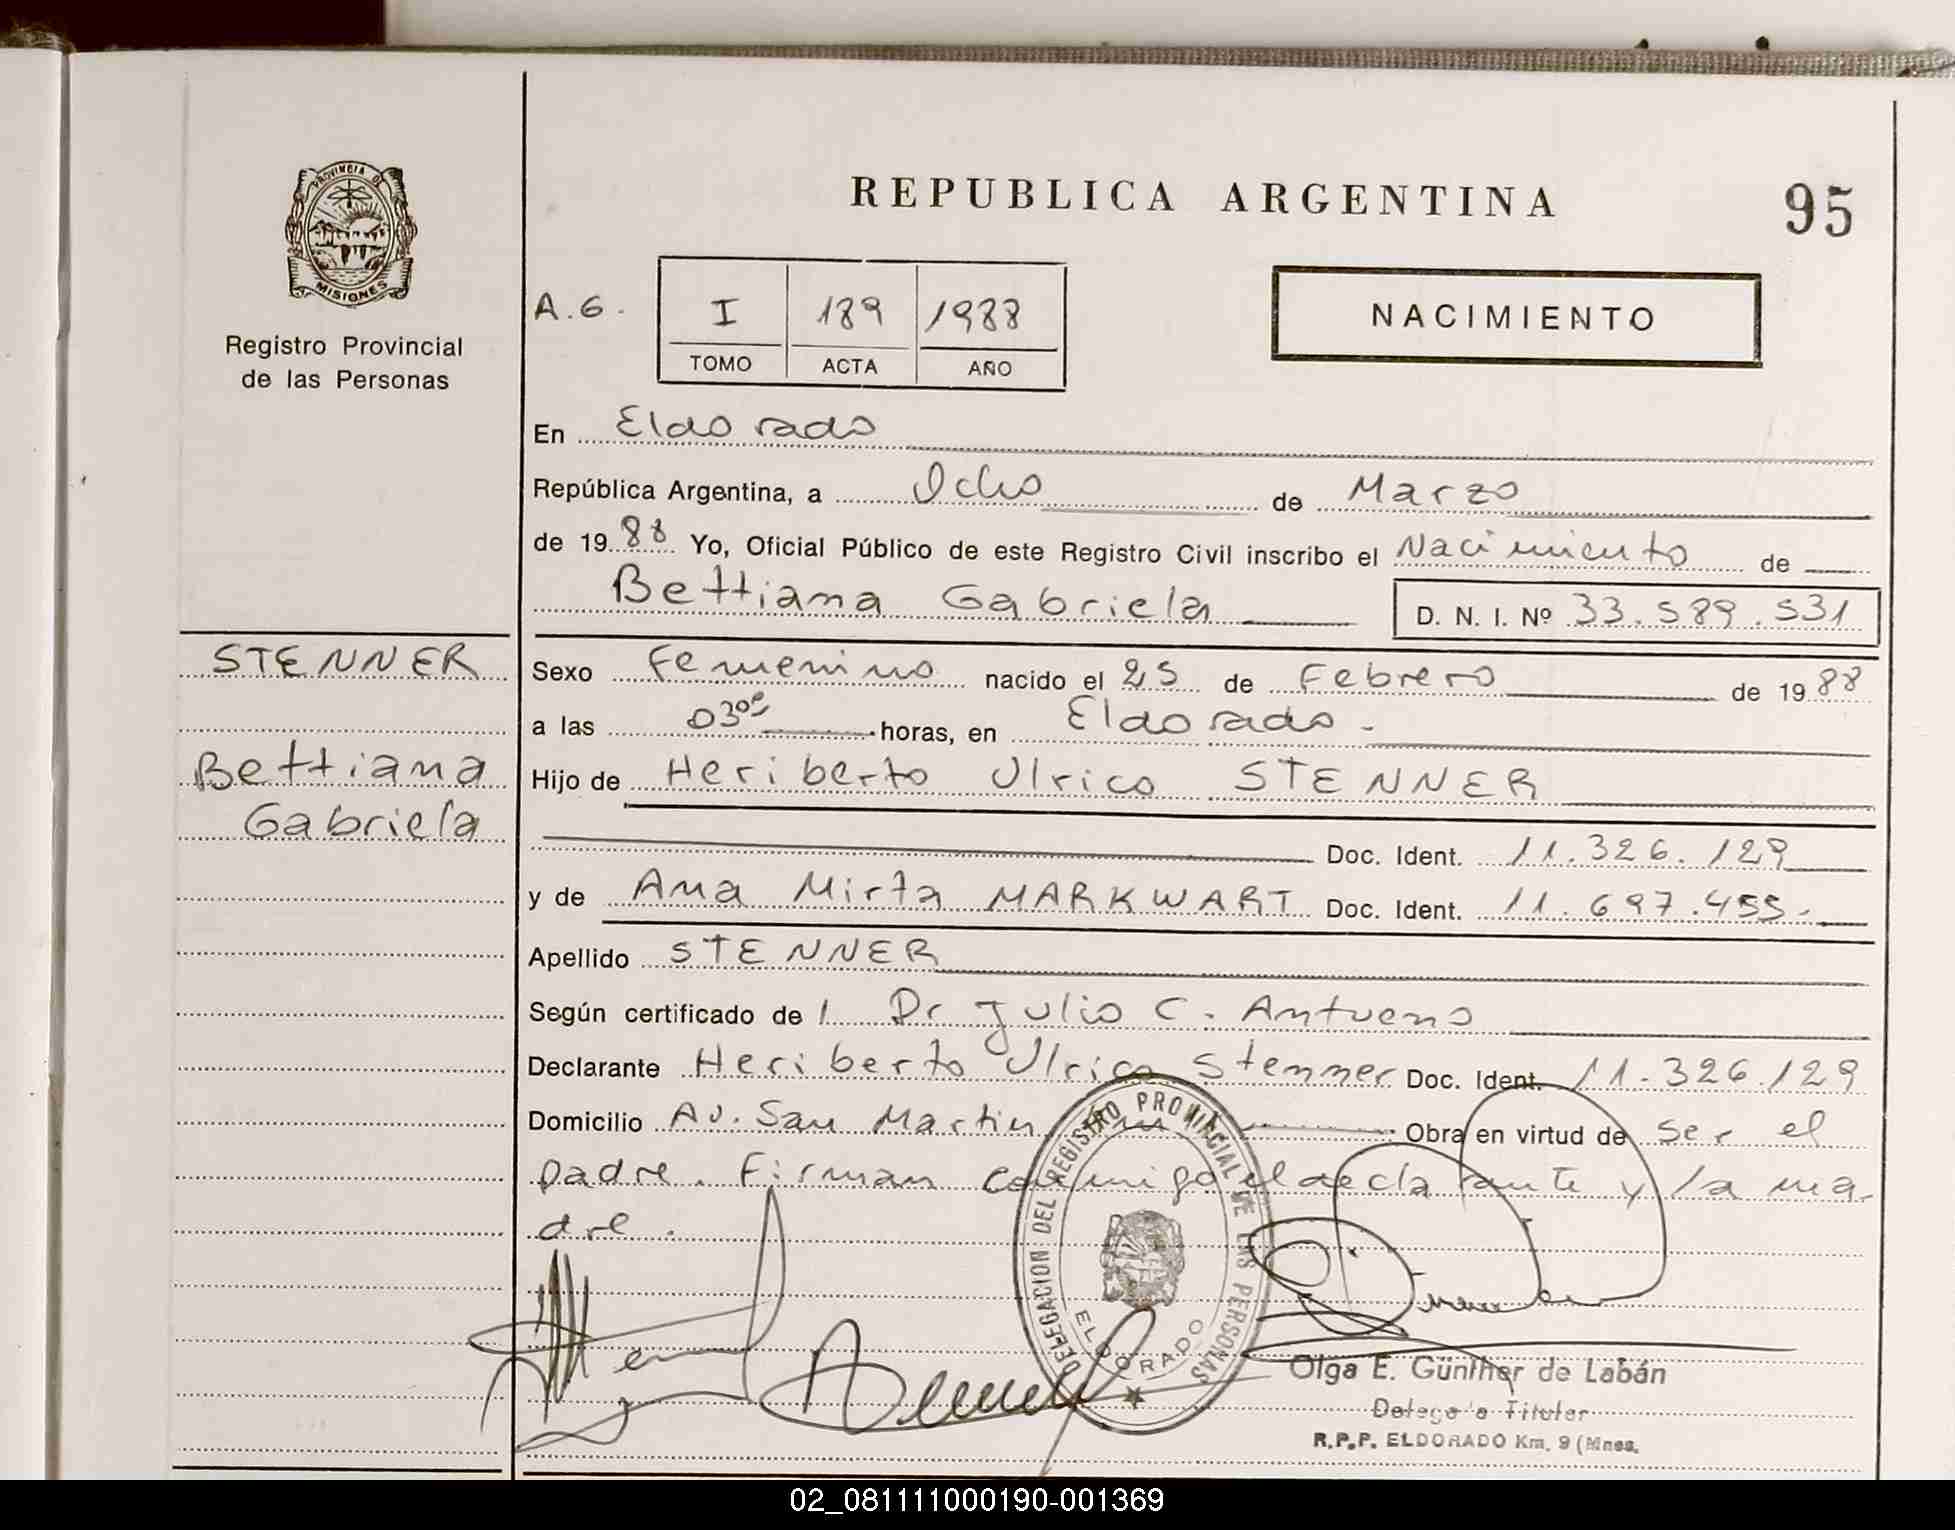 PROVINCIA DE
MISIONES
Registro Provincial
de las Personas
REPUBLICA ARGENTINA
95
A.G.
I 189 1988
TOMO ACTA AÑO
NACIMIENTO
En Eldorado
República Argentina, a Ocho de Marzo
de 1988 Yo, Oficial Público de este Registro Civil inscribo el Nacimiento de
Bettiana Gabriela D. N. I. Nº 33.589.531
STENNER
Bettiana
Gabriela
Sexo Femenino nacido el 25 de Febrero de 1988
a las 03 horas, en Eldorado.-
Hijo de Heriberto Ulrico STENNER
Doc. Ident. 11.326.129
y de Ana Mirta MARKWART Doc. Ident. 11.697.455.-
Apellido STENNER
Según certificado de l Dr Julio C. Antueno
Declarante Heriberto Ulrico Stenner Doc. Ident. 11.326.129
Domicilio Av. San Martin Obra en virtud de ser el
padre. Firman conmigo el declarante y la ma-
dre.
DELEGACION DEL REGISTRO PROVINCIAL DE LAS PERSONAS
ELDORADO
Olga E. Günther de Labán
Delegada Titular
R.P.P. ELDORADO Km. 9 (Mnes.
02_081111000190-001369